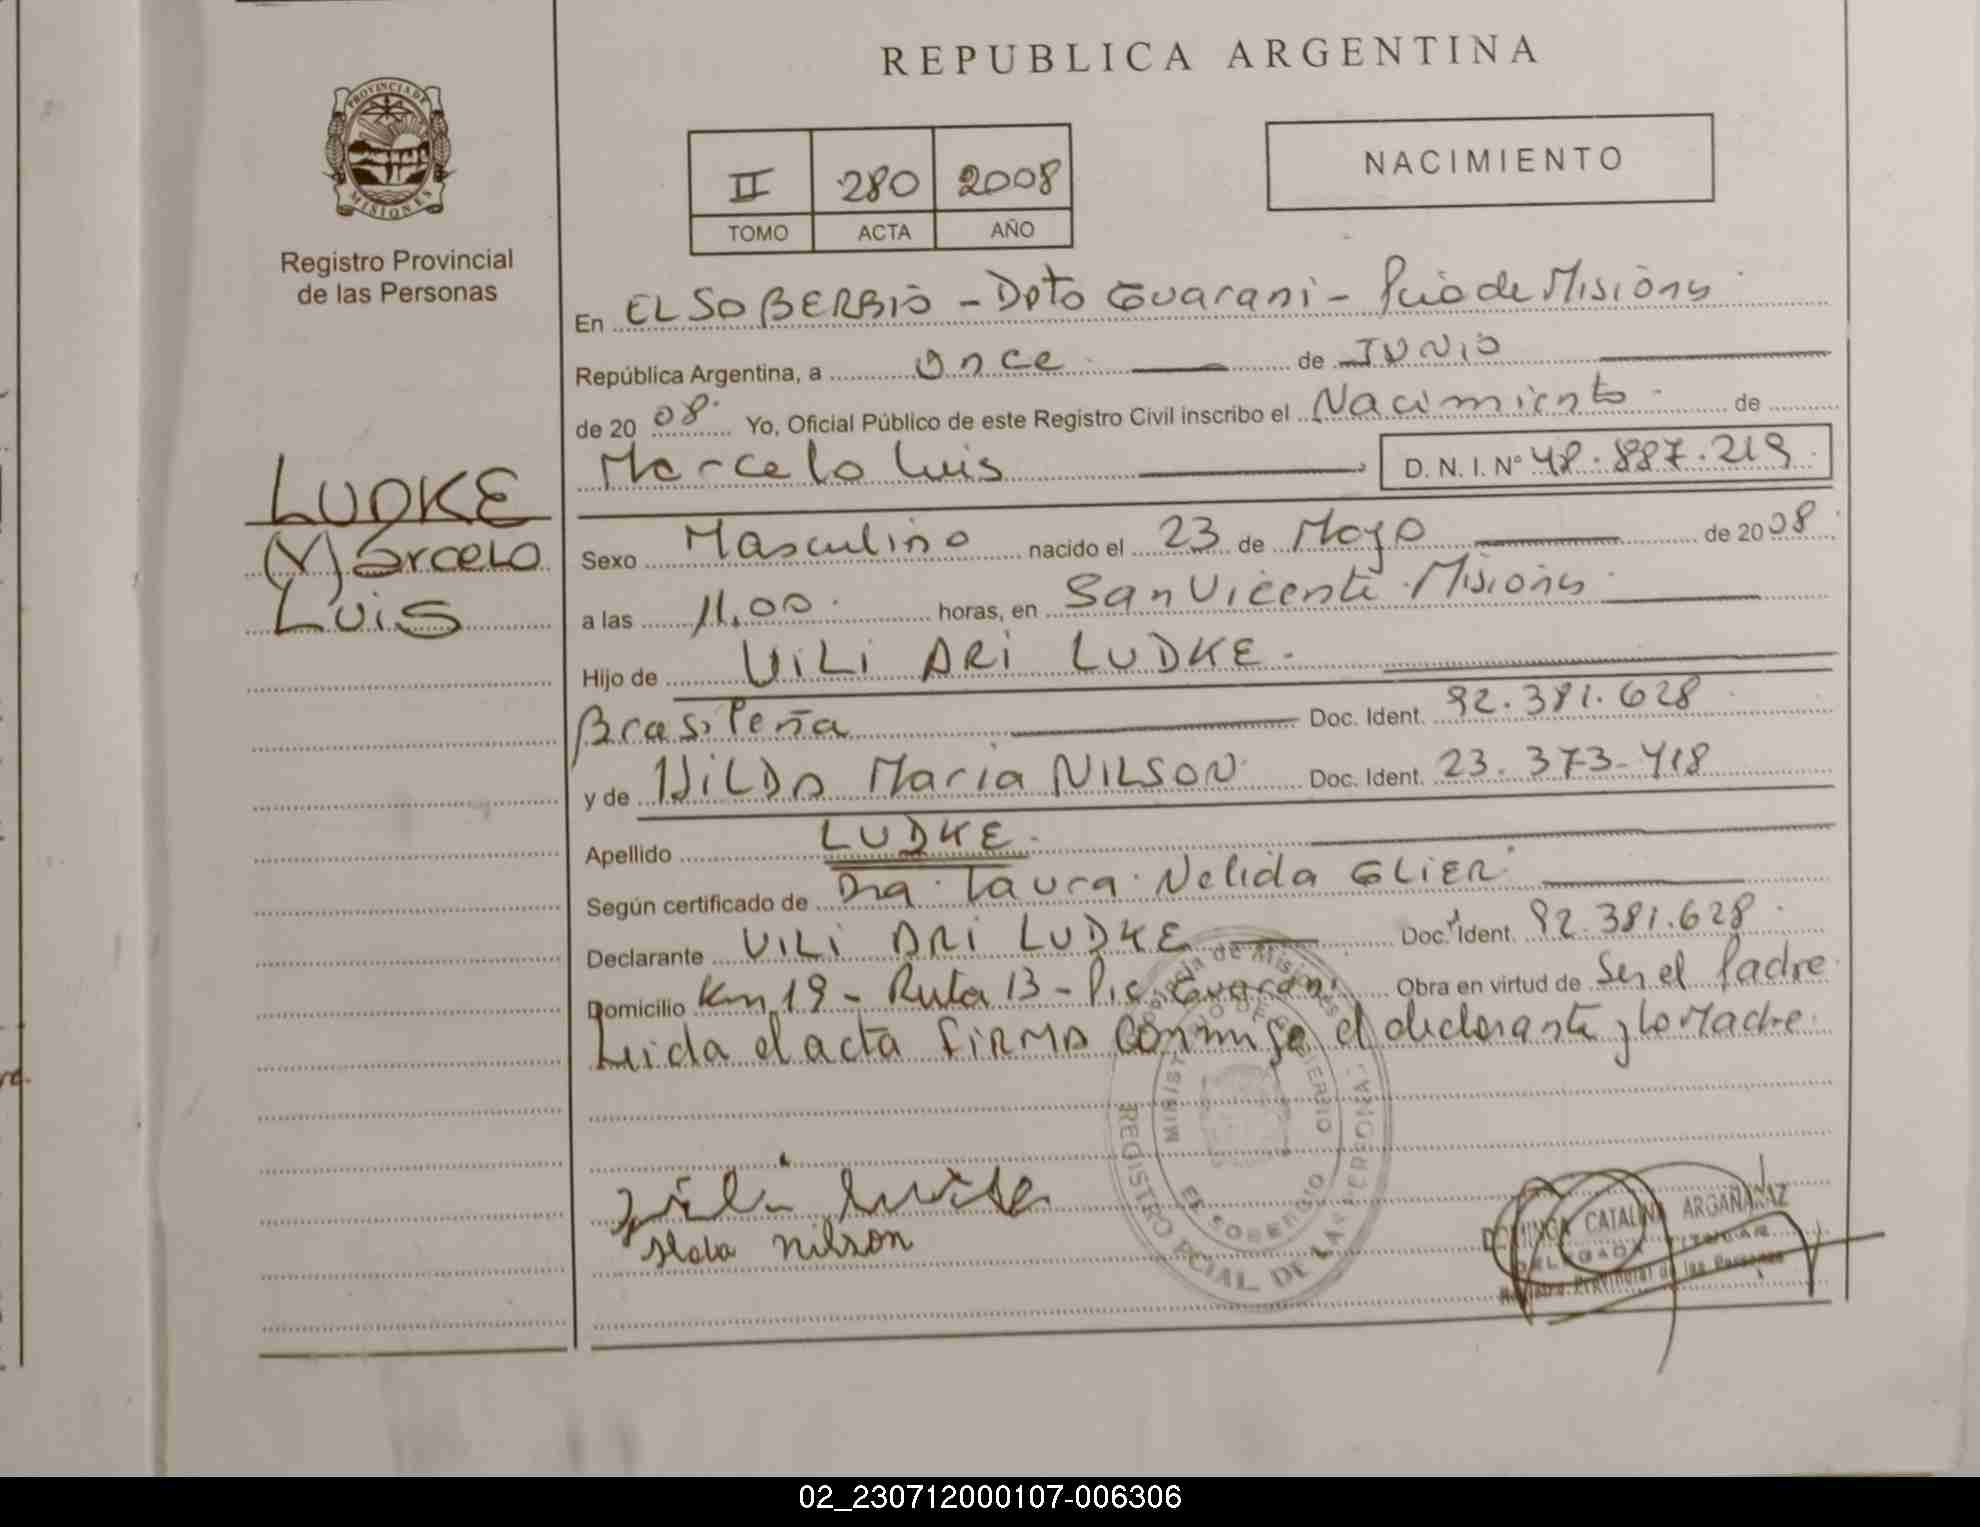 REPUBLICA ARGENTINA
PROVINCIA DE
MISIONES
Registro Provincial
de las Personas
II 280 2008
TOMO ACTA AÑO
NACIMIENTO
LUDKE
Marcelo
Luis
En EL SOBERBIO - Dpto Guarani - Pcia de Misiones
República Argentina, a once de JUNIO
de 2008. Yo, Oficial Público de este Registro Civil inscribo el Nacimiento de
Marcelo Luis D. N. I. Nº 48.887.219
Sexo Masculino nacido el 23 de Mayo de 2008
a las 11,00 horas, en San Vicente Misiones
Hijo de UILI ARI LUDKE
Brasileña Doc. Ident. 92.381.628
y de HILDA Maria NILSON Doc. Ident. 23.373.418
Apellido LUDKE
Según certificado de Dra. Laura Nelida GLIER
Declarante UILI ARI LUDKE Doc. Ident. 92.381.628
Domicilio Km 19 - Ruta 13 - Pic. Guarani Obra en virtud de Ser el Padre
Leida el acta FIRMA conmigo el declarante y la Madre
Provincia de Misiones
MINISTERIO DE GOBIERNO
EL SOBERBIO
REGISTRO PCIAL. DE LAS PERSONAS
nilson
DOMINGA CATALINA ARGAÑARAZ
DELEGADA TITULAR
Registro Provincial de las Personas
02_230712000107-006306